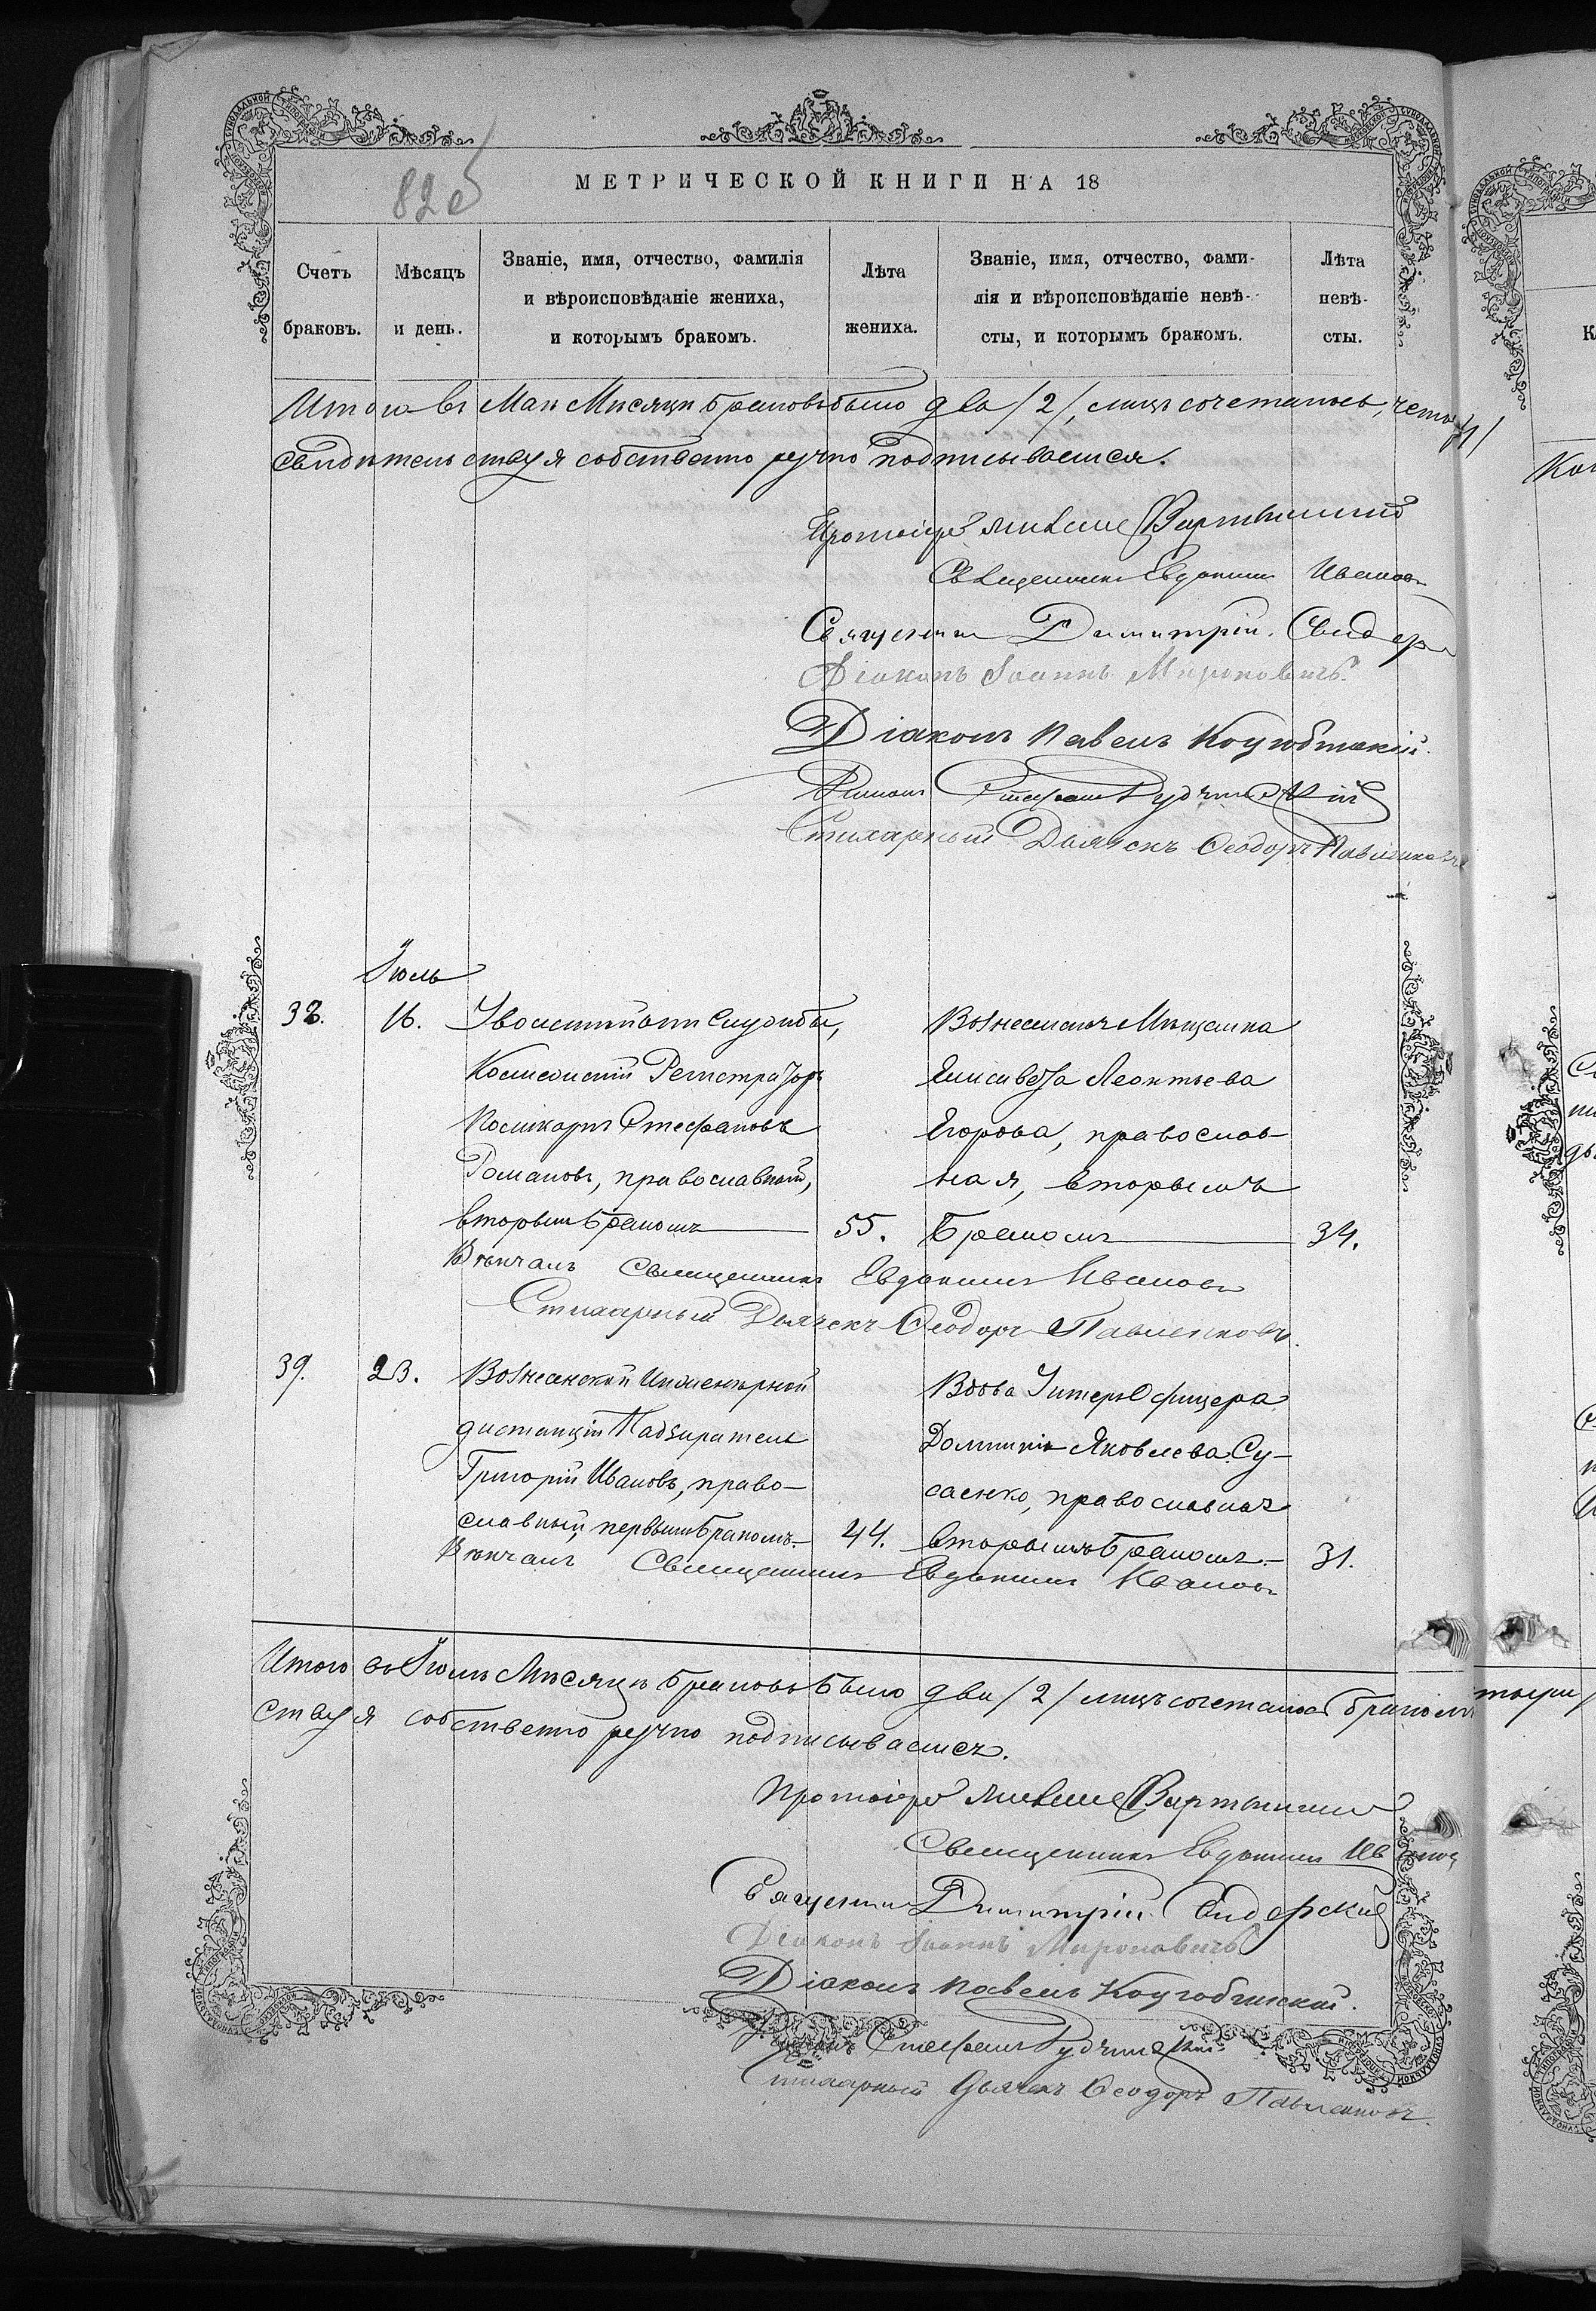 82об
МЕТРИЧЕСКОЙ КНИГИ НА 18
Счетъ браковъ.
Мѣсяцъ и день.
Званіе, имя, отчество, фамилія
и вѣроисповѣданіе жениха,
и которымъ бракомъ.
Лѣта жениха.
Званіе, имя, отчество, фами-
лія и вѣроисповѣданіе невѣ-
сты, и которымъ бракомъ.
Лѣта невѣ-
сты.
Итого въ Маѣ Мѣсяцѣ браковъ было два /2/, лицъ сочеталось,
свидѣтельствуя собственно ручно подписываемся.
Протоіерей
Священникъ Евдокимъ Ивановъ
Священникъ Димитрій
Діаконъ Іоаннъ Мироновичъ
Діаконъ Павелъ
Діаконъ Стефанъ
Стихарный Дьячекъ Ѳеодоръ Павленковъ
Іюль
38. 16. Уволенный отъ службы,
Коллежскій Регистраторъ
Поликарпъ Стефановъ
Романовъ, православный,
вторымъ бракомъ 55.
Вознесенская Мѣщанка
Елисавета Леонтьева
Егорова, православ-
ная, вторымъ
бракомъ 34.
Вѣнчалъ Священникъ Евдокимъ Ивановъ
Стихарный Дьячекъ Ѳеодоръ Павленковъ.
39. 23. Вознесенской Инженерной
дистанціи Надзиратель
Григорій Ивановъ, право-
славный, первымъ бракомъ. 44.
Вдова Унтеръ Офицера
Домникія Яковлева Су-
саенко, православная
вторымъ бракомъ. 31.
Вѣнчалъ Священникъ Евдокимъ Ивановъ
Итого въ Іюлѣ Мѣсяцѣ браковъ было два /2/ лицъ сочеталось бракомъ
ствуя собственно ручно подписываемся.
Протоіерей
Священникъ Евдокимъ Ивановъ
Священникъ Димитрій Свидерскій
Діаконъ Іоаннъ Мироновичъ
Діаконъ Павелъ
Діаконъ Стефанъ
Стихарный Дьячекъ Ѳеодоръ Павленковъ.